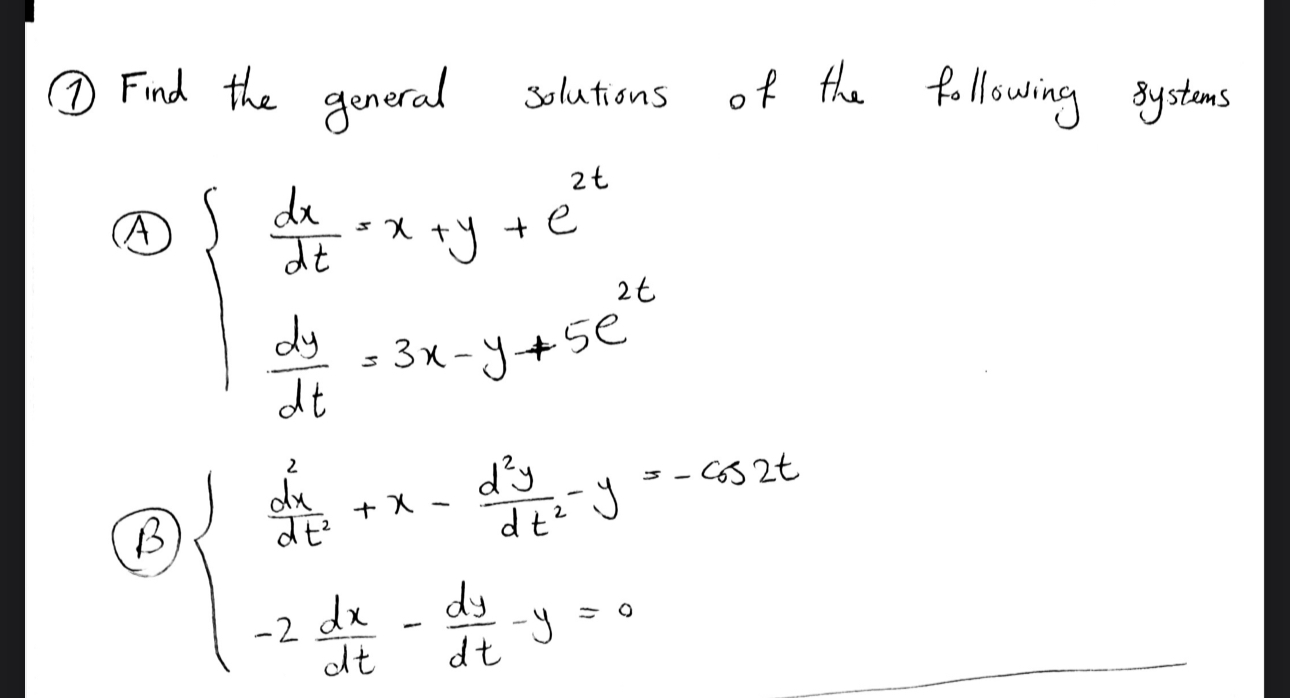 ① Find the general solutions of the following systems
Ⓐ { dx/dt = x + y + e^{2t}
dy/dt = 3x - y + 5e^{2t}
Ⓑ { d²x/dt² + x - d²y/dt² - y = - cos 2t
-2 dx/dt - dy/dt - y = 0